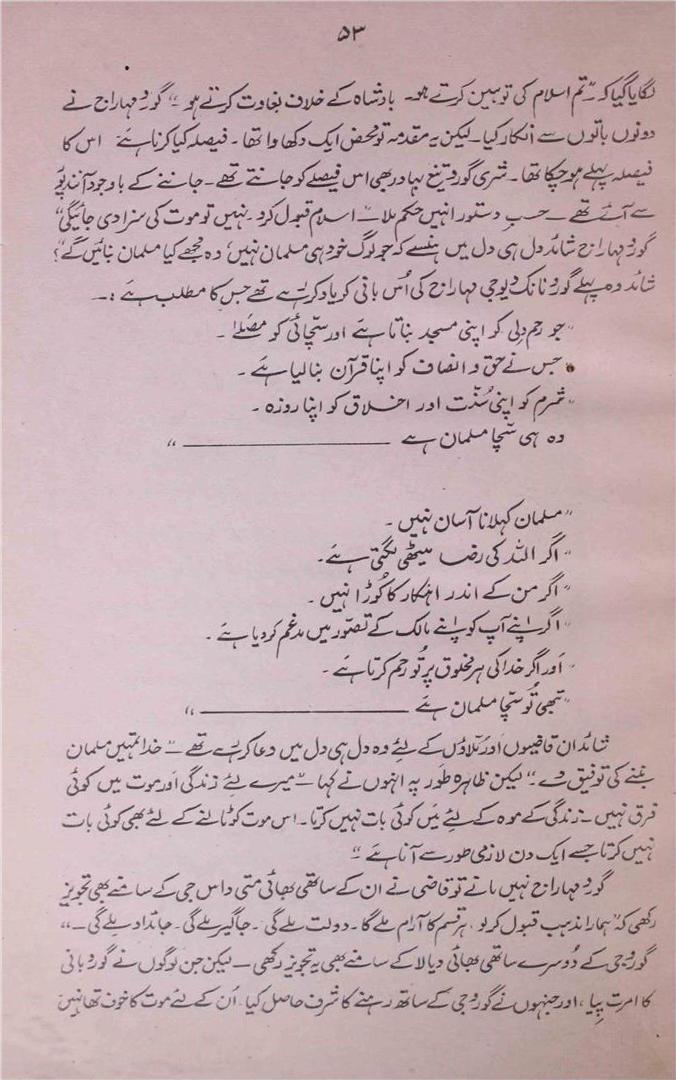 ۵۳
لگایا گیا کہ "تم اسلام کی توہین کرتے ہو۔ بادشاہ کے خلاف بغاوت کرتے ہو"۔ گورو مہاراج نے
دونوں باتوں سے انکار کیا۔ لیکن یہ مقدمہ تو محض ایک دکھاوا تھا۔ فیصلہ کیا کرنا ہے اس کا
فیصلہ پہلے ہو چکا تھا۔ شری گورو تیغ بہادر بھی اس فیصلے کو جانتے تھے۔ جاننے کے باوجود آنند پور
سے آئے تھے۔ حسبِ دستور انہیں حکم ملا "اسلام قبول کرو۔ نہیں تو موت کی سزا دی جائیگی"
گورو مہاراج شائد دل ہی دل میں ہنسے کہ جو لوگ خود ہی مسلمان نہیں، وہ مجھے کیا مسلمان بنائیں گے"؟
شائد وہ پہلے گورو نانک دیو جی مہاراج کی اُس بانی کو یاد کر رہے تھے جس کا مطلب ہے :۔
"جو رحم دِلی کو اپنی مسجد بناتا ہے اور سچائی کو مصلےٰ۔
"جس نے حق و انصاف کو اپنا قرآن بنا لیا ہے۔
"شرم کو اپنی سُنّت اور اخلاق کو اپنا روزہ۔
وہ ہی سچا مسلمان ہے ــــــــــــــــ"
"مسلمان کہلانا آسان نہیں۔
"اگر اللہ کی رضا میٹھی لگتی ہے۔
"اگر من کے اندر اہنکار کا کُوڑا نہیں۔
"اگر اپنے آپ کو اپنے مالک کے تصوّر میں مدغم کر دیا ہے۔
"اَور اگر خدا کی ہر مخلوق پر تُو رحم کرتا ہے۔
"تبھی تُو سچا مسلمان ہے ــــــــــــــــ"
شائد ان قاضیوں اور مُلّاؤں کے لئے وہ دل ہی دل میں دعا کر رہے تھے۔ خدا تمہیں مسلمان
بننے کی توفیق دے۔" لیکن ظاہرہ طور پہ انہوں نے کہا "میرے لئے زندگی اور موت میں کوئی
فرق نہیں۔ زندگی کے موہ کے لئے میں کوئی بات نہیں کرتا۔ اس موت کو ٹالنے کے لئے بھی کوئی بات
نہیں کرتا جسے ایک دن لازمی طور سے آنا ہے"۔
گورو مہاراج نہیں مانے تو قاضی نے ان کے ساتھی بھائی متی داس جی کے سامنے بھی تجویز
رکھی کہ "ہمارا مذہب قبول کر لو، ہر قسم کا آرام ملے گا۔ دولت ملے گی۔ جاگیر ملے گی۔ جائداد ملے گی۔"
گورو جی کے دُوسرے ساتھی بھائی دیالا کے سامنے بھی یہ تجویز رکھی۔ لیکن جن لوگوں نے گورو بانی
کا امرت پِیا، اور جنہوں نے گورو جی کے ساتھ رہنے کا شرف حاصل کیا، اُن کے لئے موت کا خوف تھا نہیں